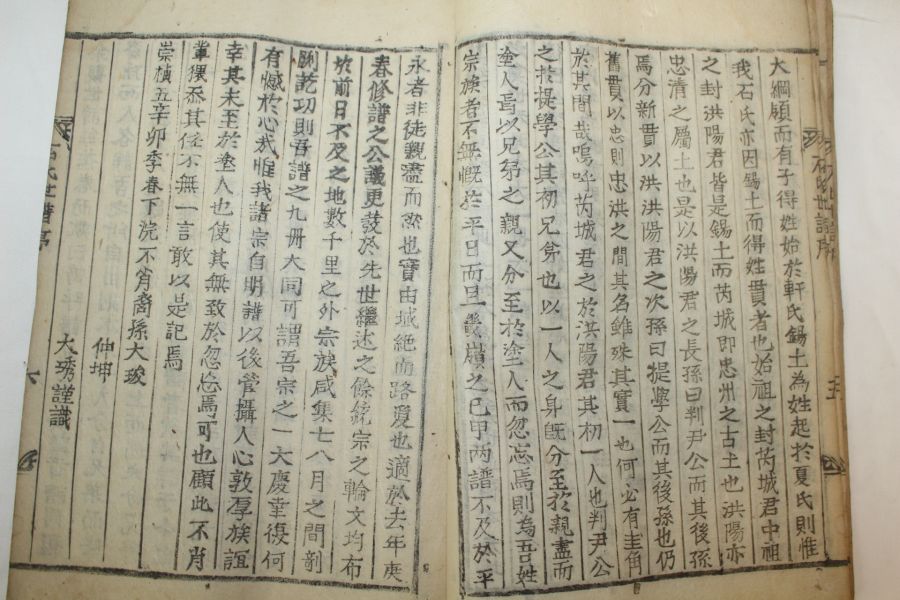 大綱領而有子得姓始於軒氏錫土為姓起於夏氏則惟
我石氏亦因錫土而得姓貫者也始祖之封芮城君中祖
之封洪陽君皆是錫土而芮城即忠州之古土也洪陽亦
忠清之屬土也是以洪陽君之長孫曰判尹公而其後孫
焉分新貫以洪洪陽君之次孫曰提學公而其後孫也仍
舊貫以忠則忠洪之間其名雖殊其實一也何必有圭角
於其間哉嗚呼芮城君之於洪陽君其初一人也判尹公
之於提學公其初兄弟也以一人之身旣分至於親盡而
塗人噫以兄弟之親又分至於塗人而忽忘焉則為吾姓
宗族者不無慨於平日而且嶺之已甲两譜不及於平
永者非徒親盡而然也實由域絶而路夐也適於去年庚
春修譜之公議更發於先世繼述之餘統宗之輪文均布
於前日不及之地數千里之外宗族咸集七八月之間剞
劂訖功則吾譜之九冊大同可謂吾宗之一大慶幸復何
有憾於心哉惟我諸宗自明譜以後管攝人心敦厚族誼
幸其未至於塗人也使其無致於忽忘焉可也顧此不肖
輩猥忝其任不無一言敢以是記焉
崇禎五辛卯季春下浣不肖裔孫大駿
仲坤
大琇謹識
石氏世譜序
五
氏世譜序
六